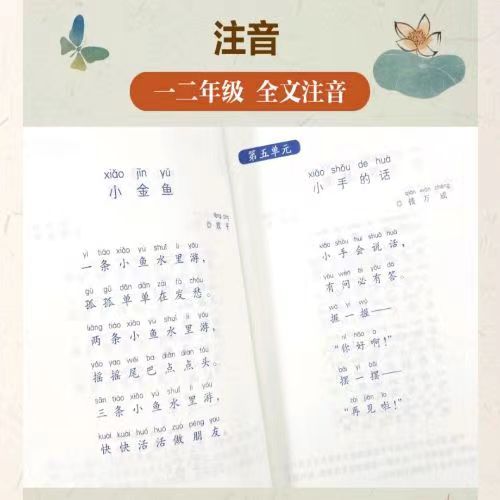 注音
一二年级 全文注音
xiǎo jīn yú
小金鱼
yì tiáo xiǎo yú shuǐ lǐ yóu
一条小鱼水里游，
gū gū dān dān zài fā chóu
孤孤单单在发愁。
liǎng tiáo xiǎo yú shuǐ lǐ yóu
两条小鱼水里游，
yáo yao wěi ba diǎn dian tóu
摇摇尾巴点点头。
sān tiáo xiǎo yú shuǐ lǐ yóu
三条小鱼水里游，
kuài kuài huó huó zuò péng you
快快活活做朋友。
第五单元
xiǎo shǒu de huà
小手的话
qián wàn chéng
◎钱万成
xiǎo shǒu huì shuō huà
小手会说话，
yǒu wèn bì yǒu dá
有问必有答。
wò yi wò
握一握——
nǐ hǎo a
“你好啊！”
bǎi yi bǎi
摆一摆——
zài jiàn la
“再见啦！”